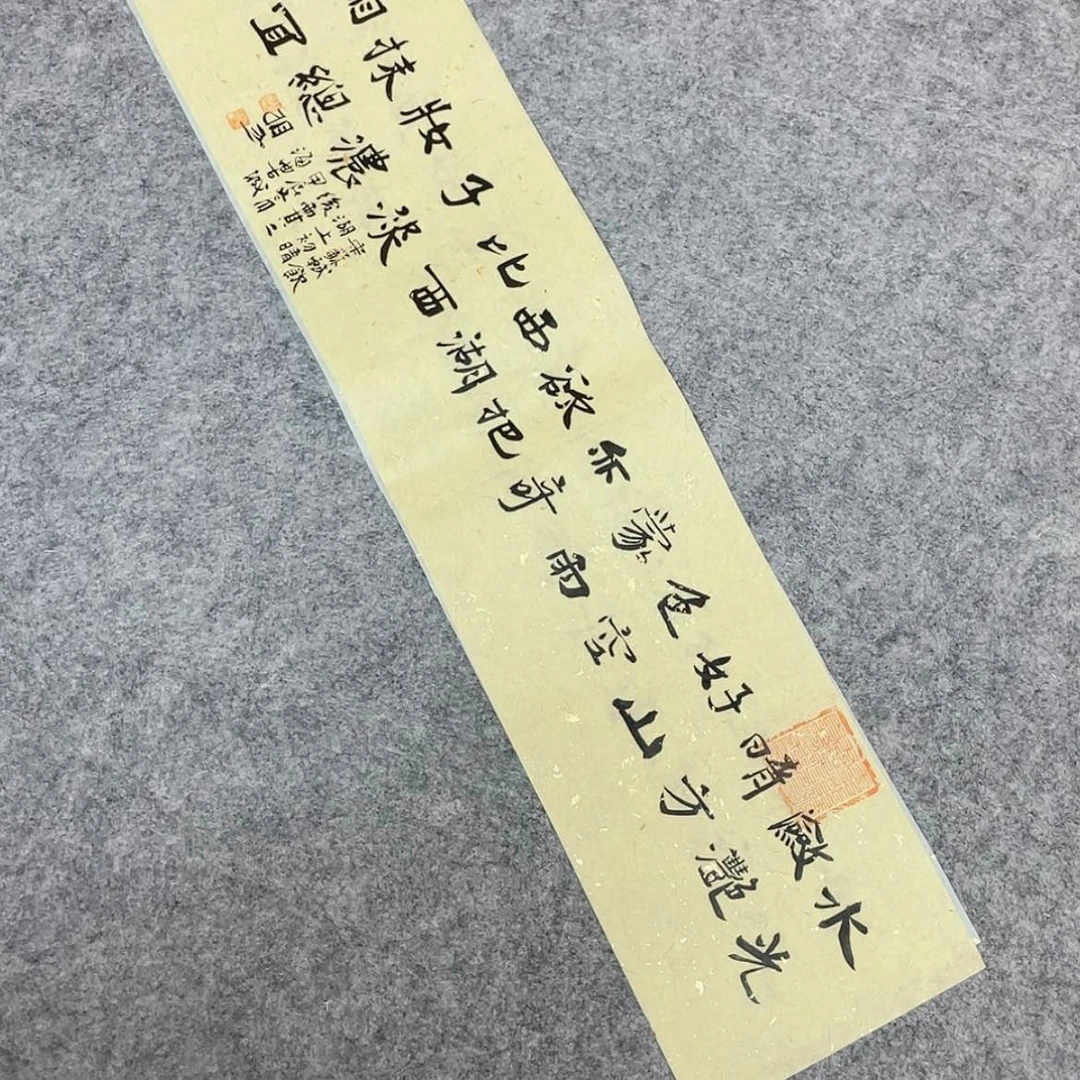 水光
瀲灩
晴方
好山
色空
蒙雨
亦奇
欲把
西湖
比西
子淡
妝濃
抹總
相宜
宋蘇軾飲
湖上初晴
後雨其二
甲辰冬月